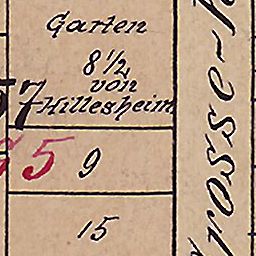 Garten
8 1/2
von
57 Hillesheim
65 9
15
rosse-